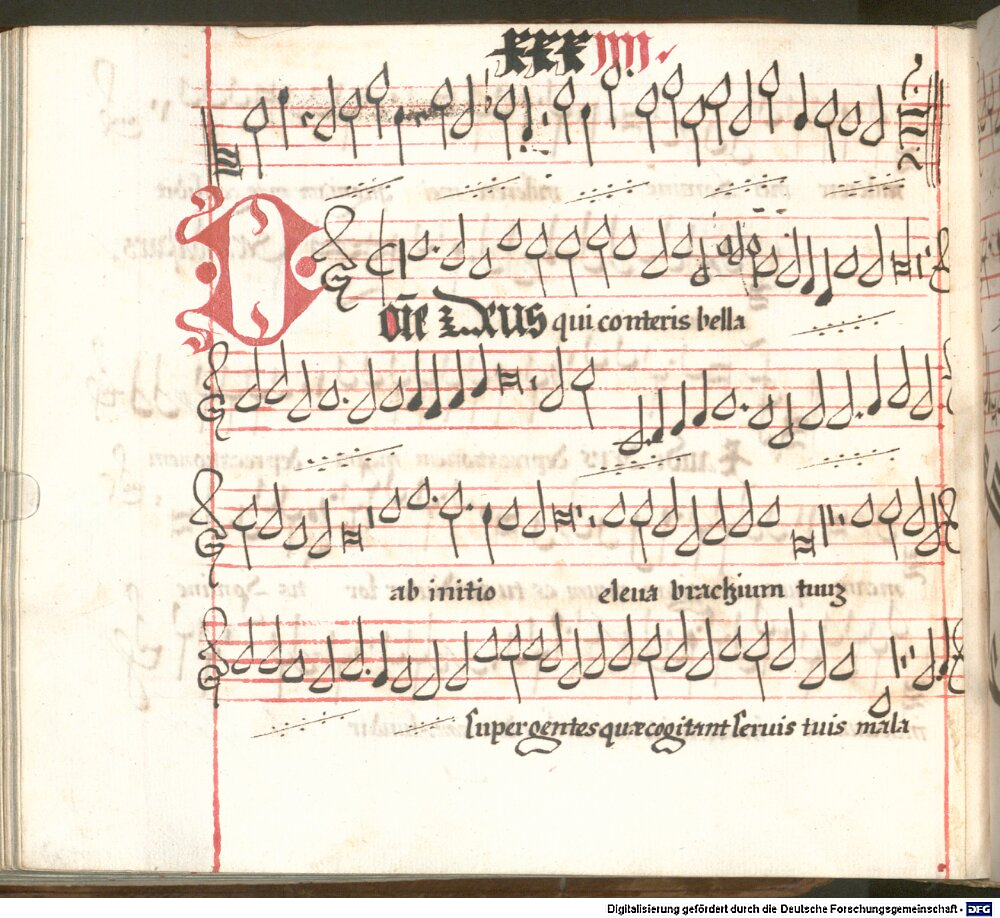 xxxiiii.
Dñe Deus qui conteris bella
ab initio eleua brachium tuuʒ
super gentes quæ cogitant seruis tuis mala
Digitalisierung gefördert durch die Deutsche Forschungsgemeinschaft - DFG